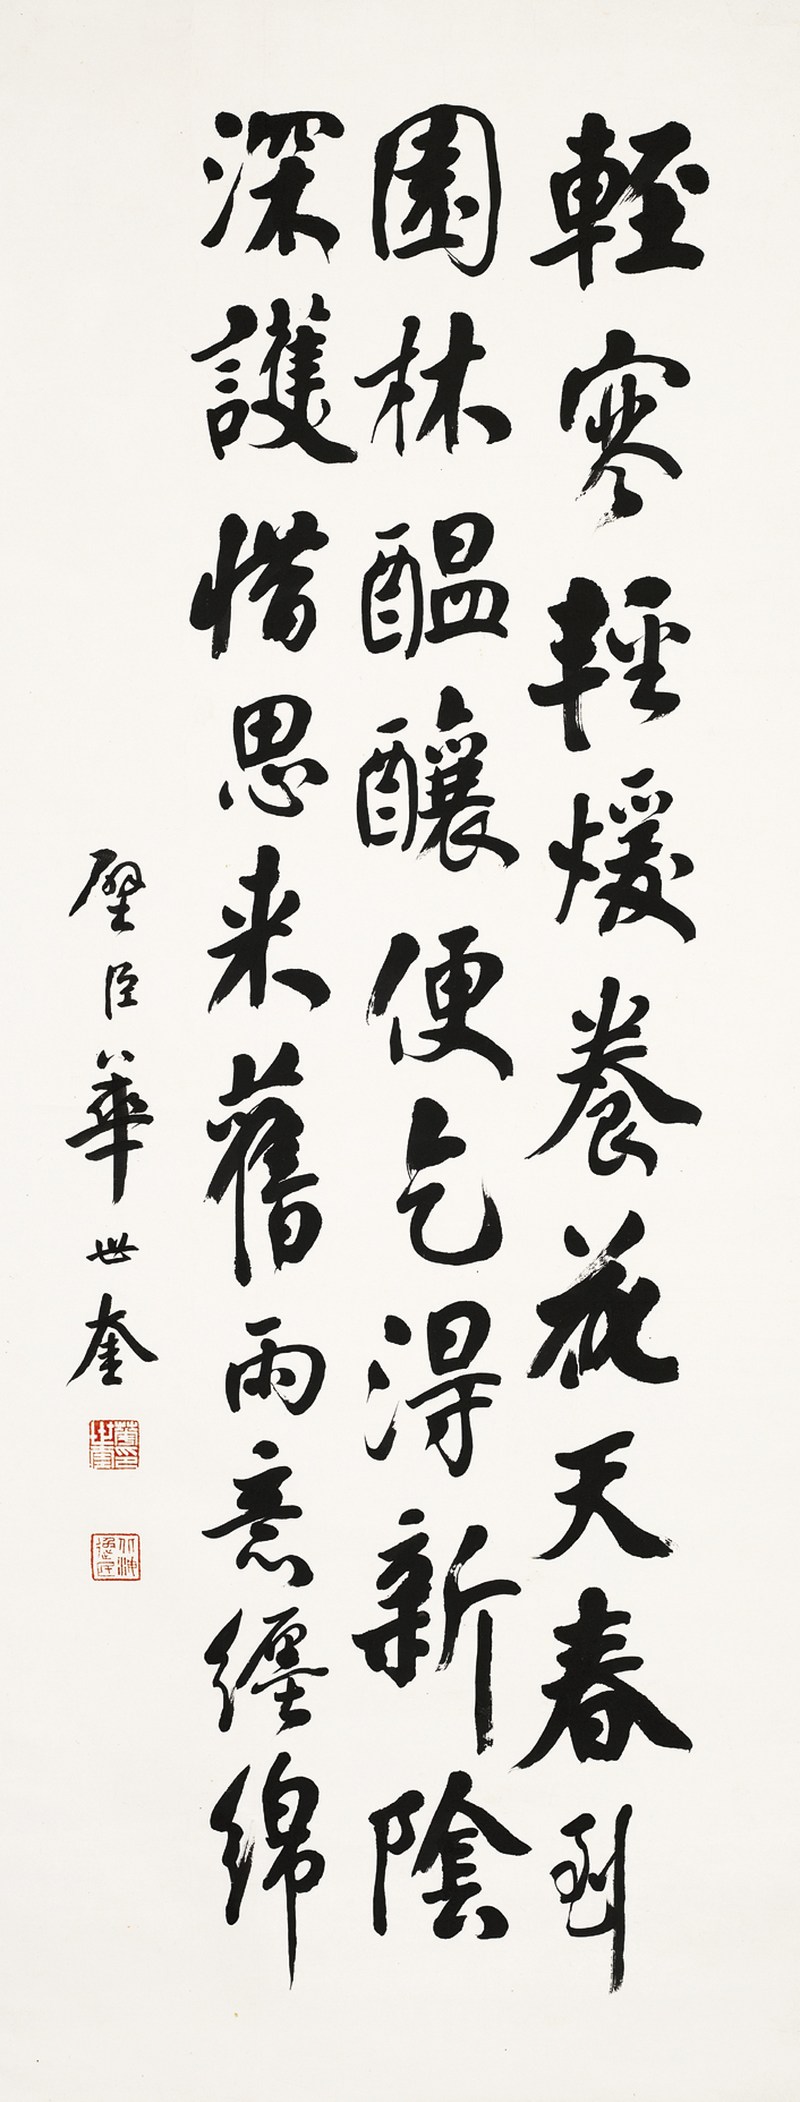 輕寒輕煖養花天春到
園林醖釀便乞得新陰
深護惜思来舊雨意纏綿
璧臣華世奎